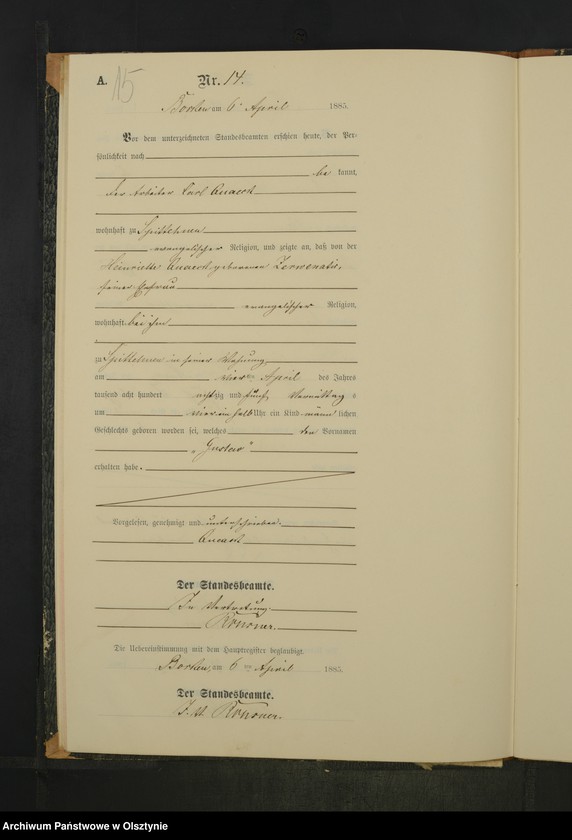 A. 15 Nr. 14.
Borken am 6 April 1885.
Vor dem unterzeichneten Standesbeamten erschien heute, der Per-
sönlichkeit nach
be kannt,
der Arbeiter Carl
wohnhaft zu
evangelischer Religion, und zeigte an, daß von der
Henriette geborenen
seiner Ehefrau
evangelischer Religion,
wohnhaft bei ihm
zu in seiner Wohnung
am vierten April des Jahres
tausend acht hundert achtzig und fünf Vormittag s
um vier ein halb Uhr ein Kind männ lichen
Geschlechts geboren worden sei, welches den Vornamen
„Gustav"
erhalten habe.
Vorgelesen, genehmigt und unterschrieben.
Der Standesbeamte.
In Vertretung.
Die Uebereinstimmung mit dem Hauptregister beglaubigt.
Borken, am 6 ten April 1885.
Der Standesbeamte.
Archiwum Państwowe w Olsztynie